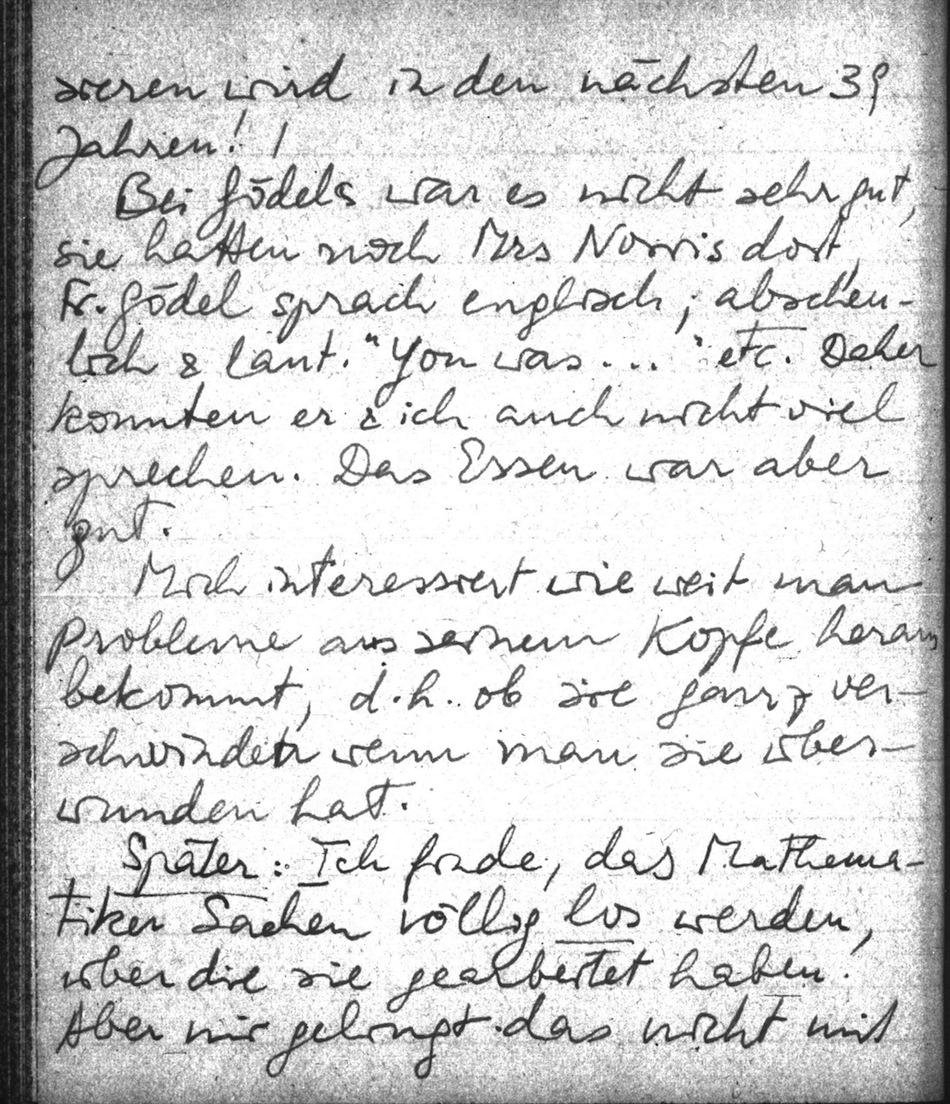 sieren wird in den nächsten 39
Jahren! !
Bei Gödels war es nicht sehr gut,
sie hatten noch Mrs Norris dort,
Fr. Gödel sprach englisch, abscheu-
lich & laut. "You was ..." etc. Daher
konnten er & ich auch nicht viel
sprechen. Das Essen war aber
gut.
Mich interessiert wie weit man
Probleme aus seinem Kopfe heraus
bekommt, d.h. ob sie ganz ver-
schwinden wenn man sie über-
wunden hat.
Später: Ich finde, das Mathema-
tiker Sachen völlig los werden,
über die sie gearbeitet haben.
Aber mir gelingt das nicht mit